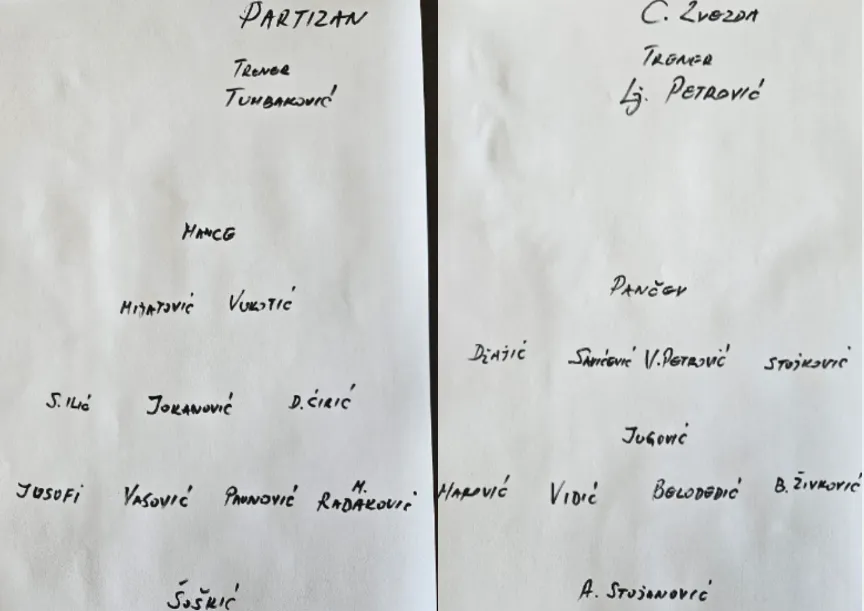 PARTIZAN
TRENER
TUMBAKOVIĆ
MANCE
MIJATOVIĆ VUKOTIĆ
S. ILIĆ JOKANOVIĆ D. ĆIRIĆ
JUSUFI VASOVIĆ PAUNOVIĆ M. RADAKOVIĆ
ŠOŠKIĆ
C. ZVEZDA
TRENER
Lj. PETROVIĆ
PANČEV
DŽAJIĆ SAVIĆEVIĆ V. PETROVIĆ STOJKOVIĆ
JUGOVIĆ
MAROVIĆ VIDIĆ BELODEDIĆ B. ŽIVKOVIĆ
A. STOJANOVIĆ